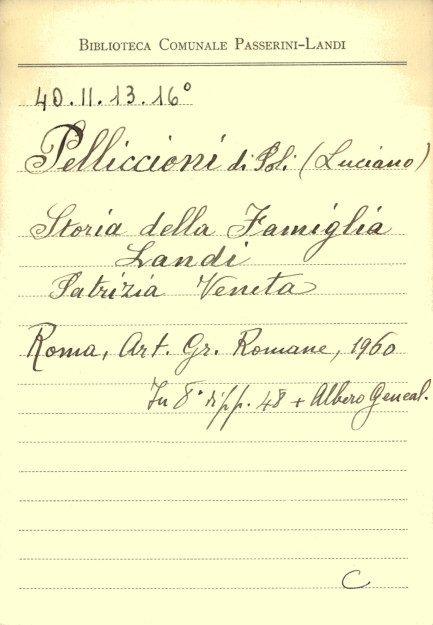 BIBLIOTECA COMUNALE PASSERINI-LANDI
40.II.13.16°
Pelliccioni di Poli (Luciano)
Storia della Famiglia
Landi
Patrizia Veneta
Roma, Art. Gr. Romane, 1960
In 8° di pp. 48 + Albero Geneal.
C